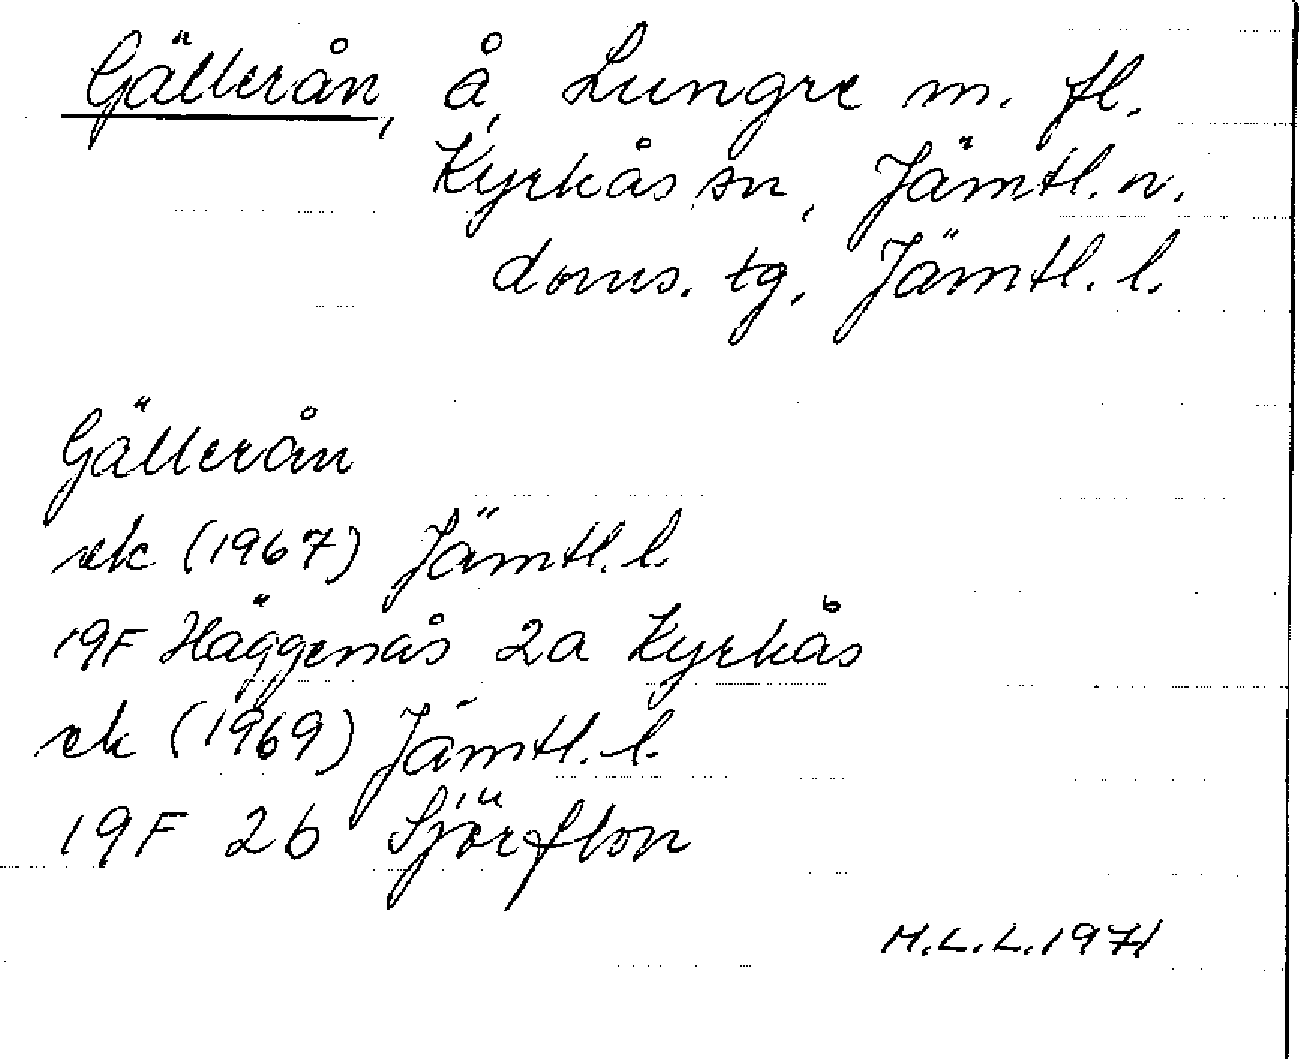 Gällerån, å, Lungre m. fl.
Kyrkås sn, Jämtl. n.
doms. tg, Jämtl. l.
Gällerån
ek (1967) Jämtl. l.
19F Häggenås 2a Kyrkås
ek (1969) Jämtl. l.
19F 2b Sjörflon
M.L.L. 1971